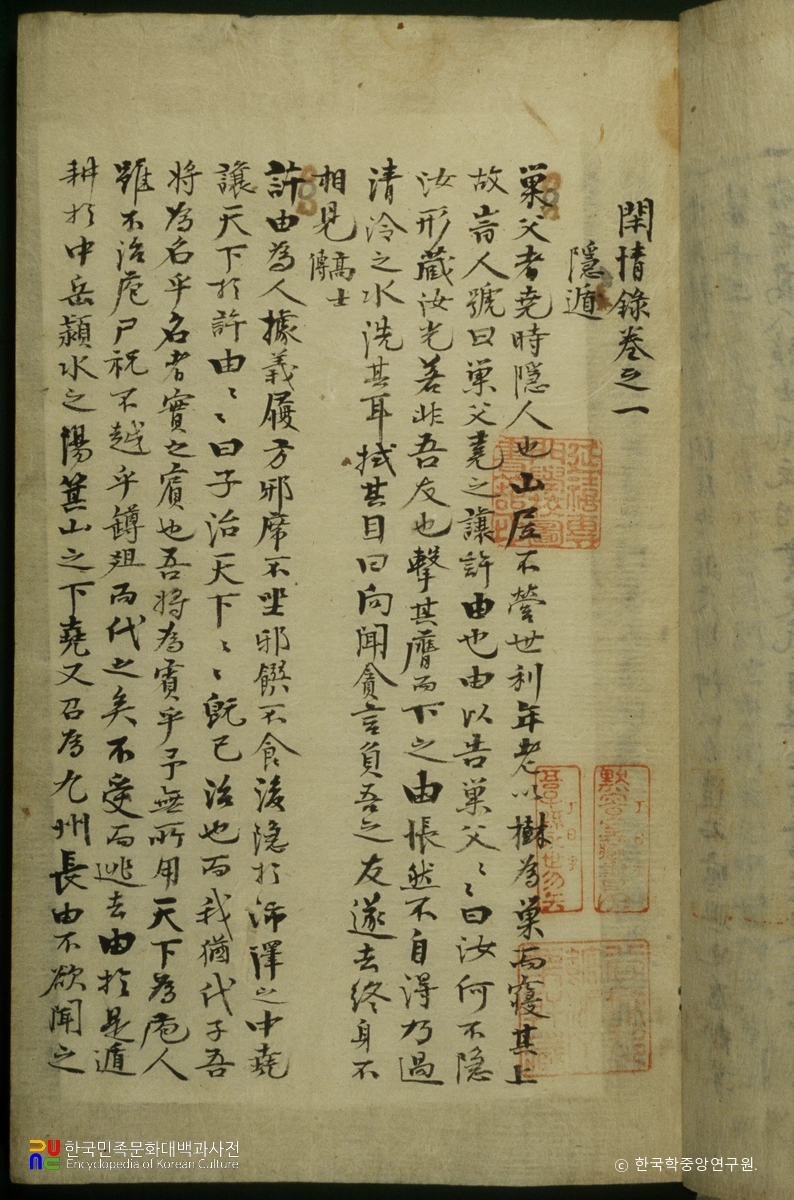 閑情錄卷之一
隱遁
巢父者堯時隱人也山居不營世利年老以樹為巢而寢其上
故時人號曰巢父堯之讓許由也由以告巢父〻〻曰汝何不隱
汝形藏汝光若非吾友也擊其膺而下之由悵然不自得乃過
清泠之水洗其耳拭其目曰向聞貪言負吾之友遂去終身不
相見 高士傳
許由為人據義履方邪席不坐邪饌不食後隱於沛澤之中堯
讓天下於許由〻〻曰子治天下〻〻既已治也而我猶代子吾
將為名乎名者實之賓也吾將為賓乎予無所用天下為庖人
雖不治庖尸祝不越乎罇俎而代之矣不受而逃去由於是遁
耕於中岳潁水之陽箕山之下堯又召為九州長由不欲聞之
한국민족문화대백과사전
Encyclopedia of Korean Culture
© 한국학중앙연구원.